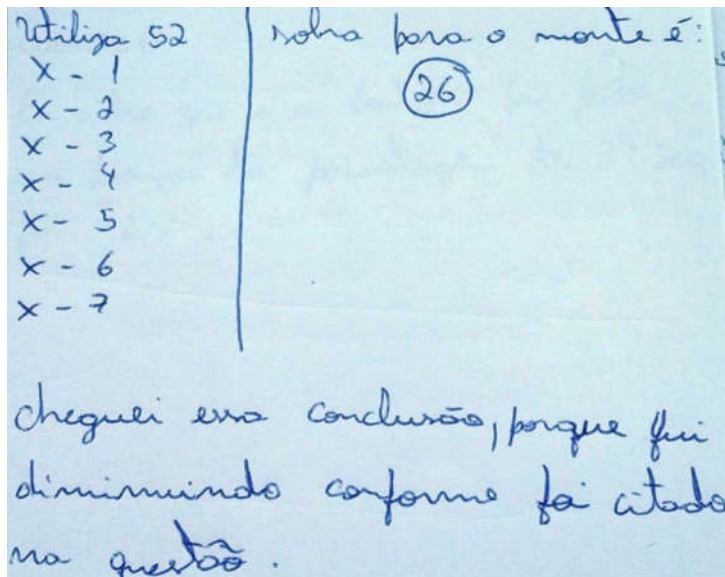 Utiliza 52
x - 1
x - 2
x - 3
x - 4
x - 5
x - 6
x - 7
sobra para o monte é:
26
cheguei essa conclusão, porque fui
diminuindo conforme foi citado
na questão.